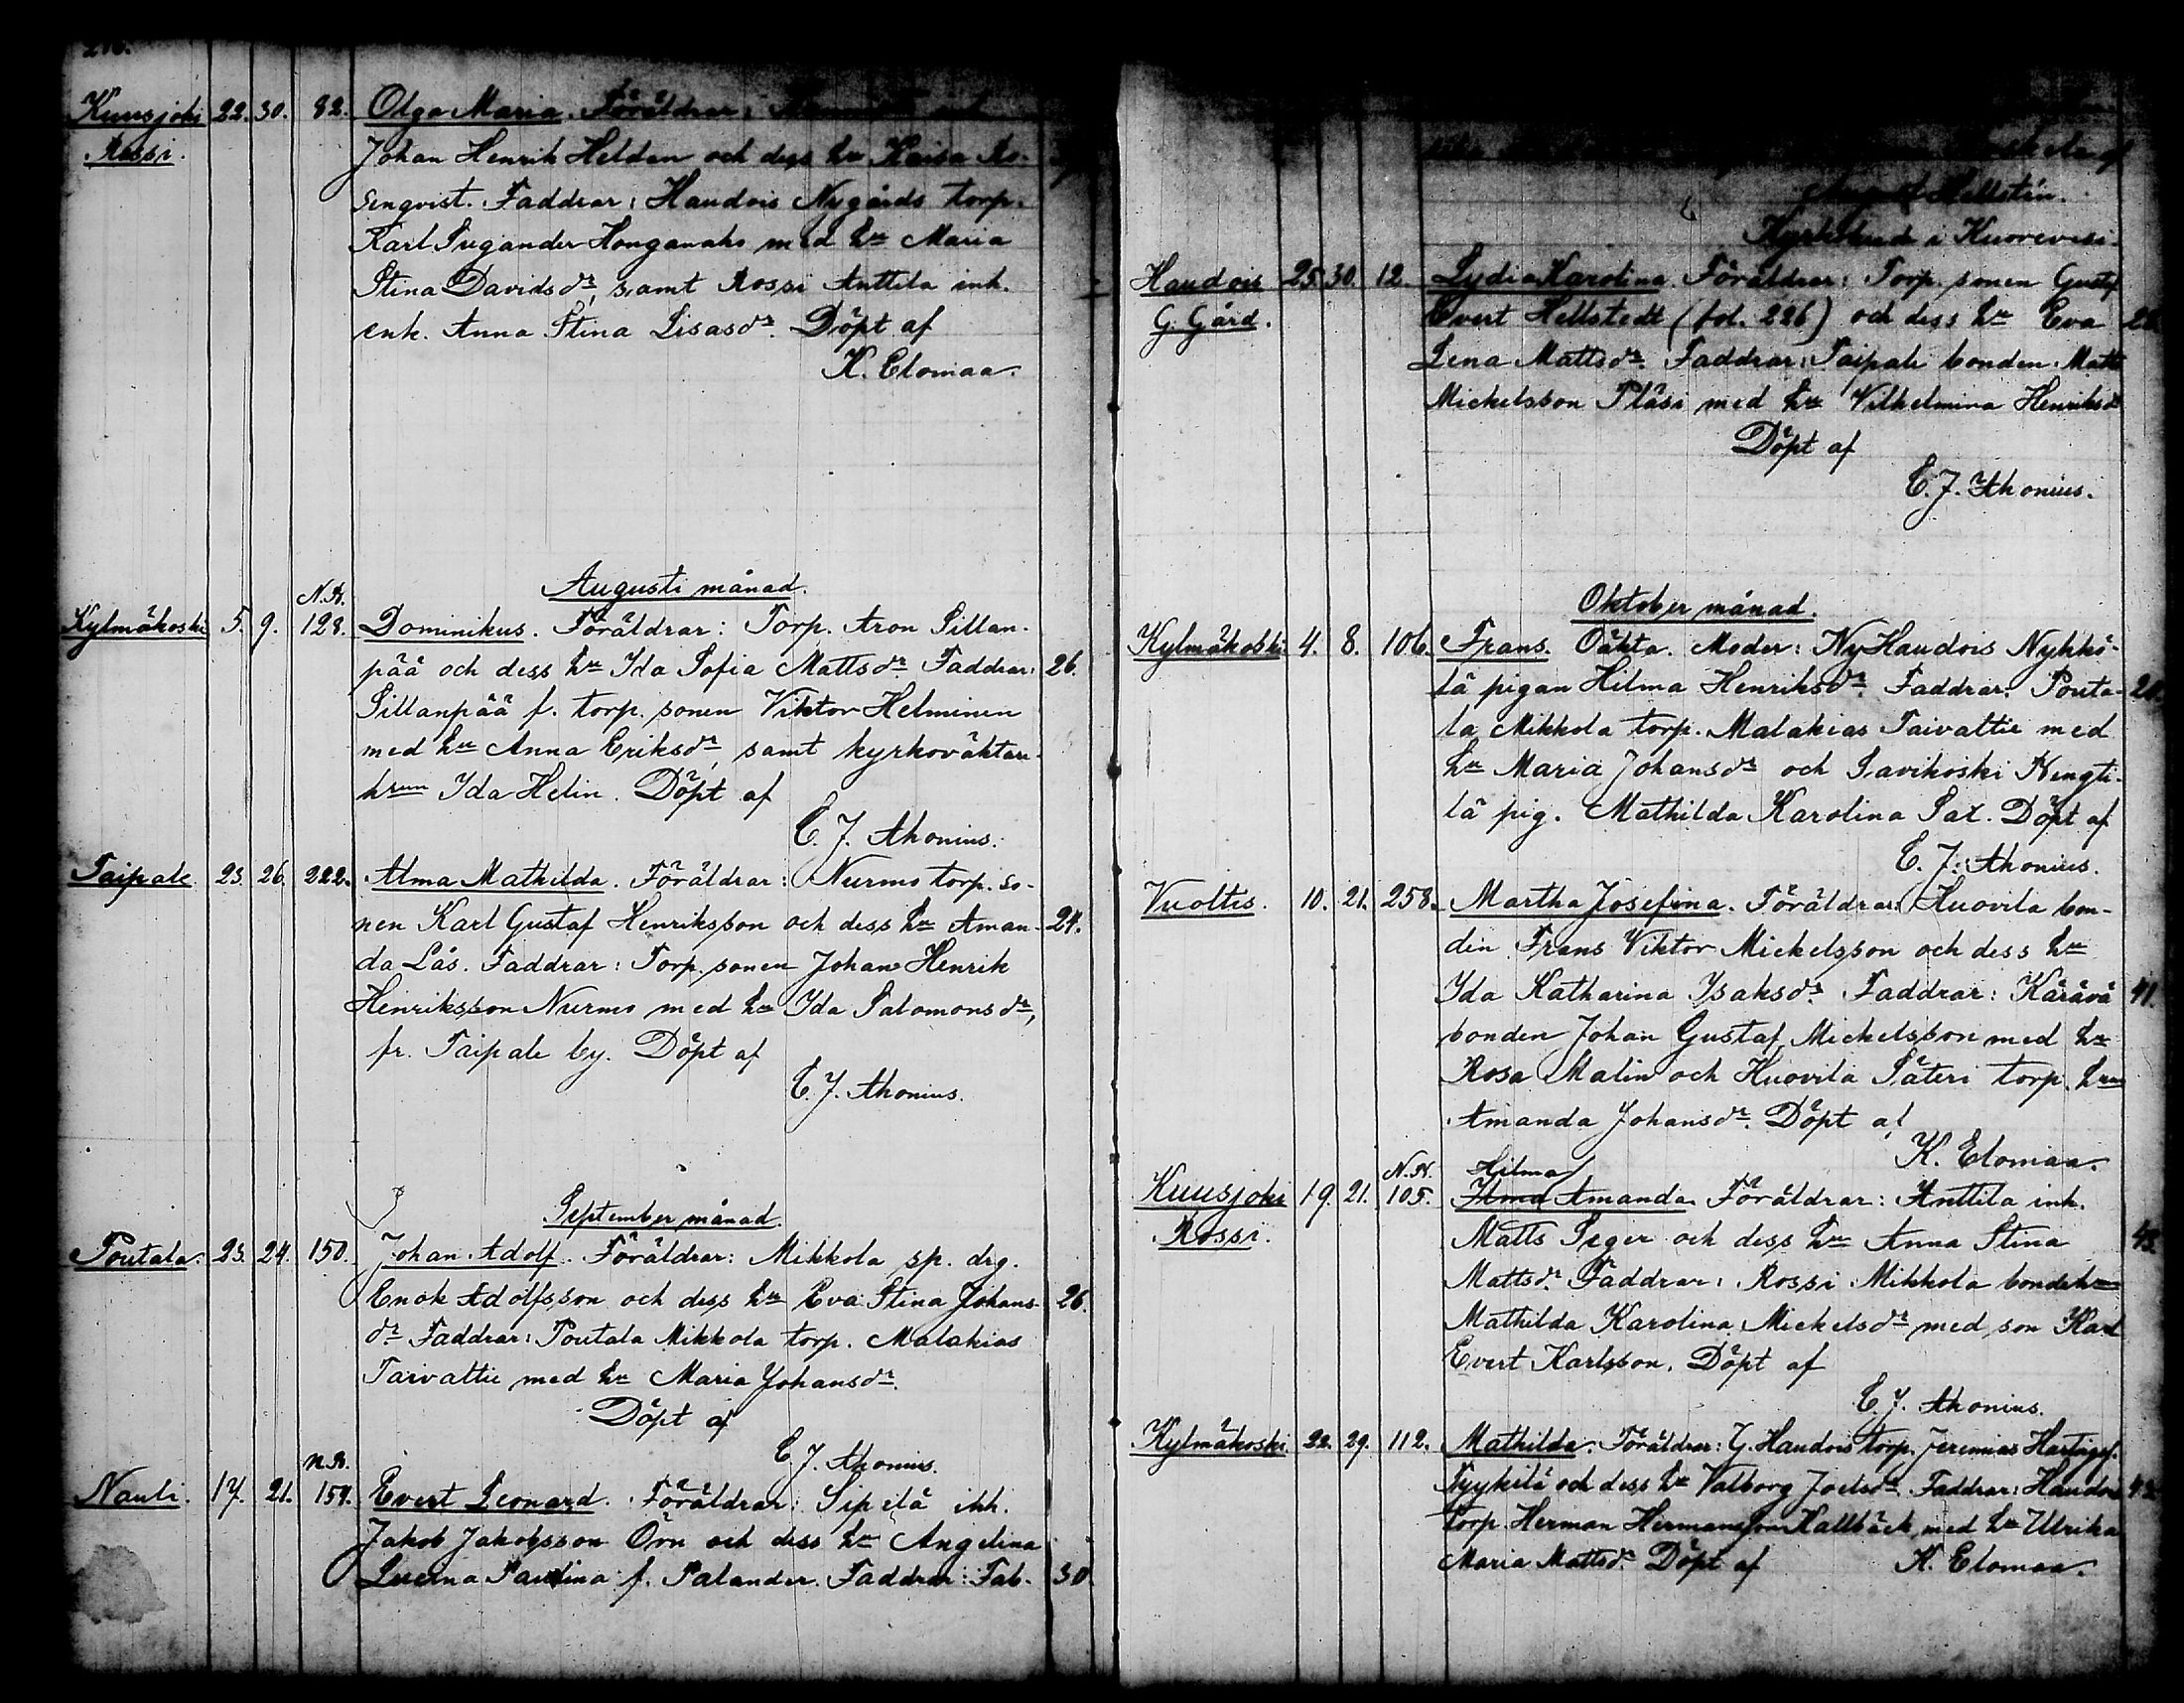 Kuusjoki 22. 30. 82. Olga Maria. Föräldrar:
Rossi. Johan Henrik Helden och dess hu Kaisa Ro-
senqvist. Faddrar: Haudois Nygårds torp.
Karl Sugander Honganaho med hu Maria
Stina Davidsdr, samt Rossi Anttila inh.
enk. Anna Stina Lisasdr. Döpt af
K. Elomaa.
Augusti månad.
N.R.
Kylmäkoski 5. 9. 128. Dominikus. Föräldrar: Torp. Aron Sillan-
pää och dess hu Ida Sofia Mattsdr Faddrar: 26.
Sillanpää f. torp. sonen Viktor Helminen
med hu Anna Eriksdr, samt kyrkoväktare-
hrun Ida Helin. Döpt af
E. J. Ahonius.
Taipale 23. 26. 222. Alma Mathilda. Föräldrar: Nurmo torp. so-
nen Karl Gustaf Henriksson och dess hu Aman- 24.
da Lås. Faddrar: Torp. sonen Johan Henrik
Henriksson Nurmo med hu Ida Salomonsdr,
fr. Taipale by. Döpt af
E. J. Ahonius.
September månad.
Poutala. 23. 24. 150. Johan Adolf. Föräldrar: Mikkola sp. drg.
Enok Adolfsson och dess hu Eva Stina Johans- 26.
dr Faddrar: Poutala Mikkola torp. Malakias
Taivaltie med hu Maria Johansdr.
Döpt af
E J. Ahonius.
N.R.
Nauli. 17. 21. 159. Evert Leonard. Föräldrar: Sipilä inh.
Jakob Jakobsson Örn och dess hu Angelina
Lucina Paulina f. Palander. Faddrar: Fab- 30
August Hellstén.
i Kuorevesi.
Haudois 25. 30. 12. Lydia Karolina. Föräldrar: Torp. sonen Gustaf
G. Gård. Evert Hellstedt (fol. 226) och dess hu Eva
Lena Mattsdr. Faddrar: Taipale bonden Matts
Mickelsson Pläsi med hu Vilhelmina Henriksdr
Döpt af
E. J. Ahonius.
Oktober månad.
Kylmäkoski 4. 8. 106. Frans. Oäkta. Moder: NyHaudois Nykki-
lä pigan Hilma Henriksdr. Faddrar: Pouta-
la Mikkola torp. Malakias Taivaltie med
hu Maria Johansdr och Savikoski Kengti-
lä pig. Mathilda Karolina Sal. Döpt af
E. J. Ahonius.
Vuoltis. 10. 21. 258. Martha Josefina. Föräldrar: Huovila bon-
den Frans Viktor Mickelsson och dess hu
Ida Katharina Isaksdr. Faddrar: Kärävä 41.
bonden Johan Gustaf Mickelsson med hu
Rosa Malin och Huovila Säteri torp. hru
Amanda Johansdr. Döpt af
K. Elomaa.
N.R. Hilma
Kuusjoki 19. 21. 105. Ilma Amanda Föräldrar: Anttila inh.
Rossi. Matts Seger och dess hu Anna Stina 43.
Mattsdr. Faddrar: Rossi Mikkola bondehru
Mathilda Karolina Mickelsdr med son Karl
Evert Karlsson. Döpt af
E. J. Ahonius.
Kylmäkoski 22. 29. 112. Mathilda. Föräldrar: G. Haudois torp. Jeremias
Tyykilä och dess hu Valborg Joelsdr. Faddrar: Haudois
torp. Herman Hermansson Kallbäck med hu Ulrika
Maria Mattsdr. Döpt af K. Elomaa.